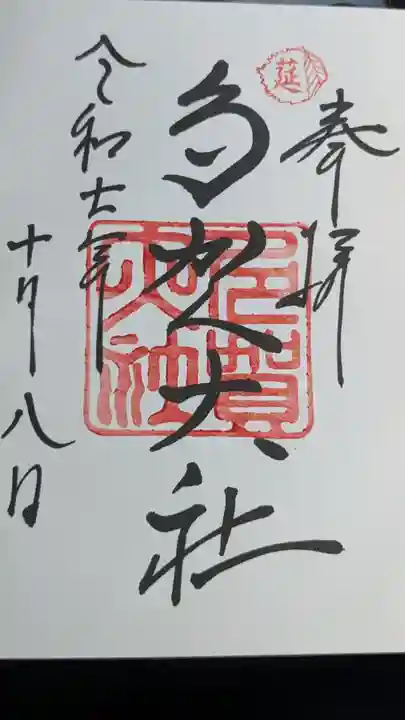 莚
奉拝
多賀大社
多賀大社
令和年
十月八日